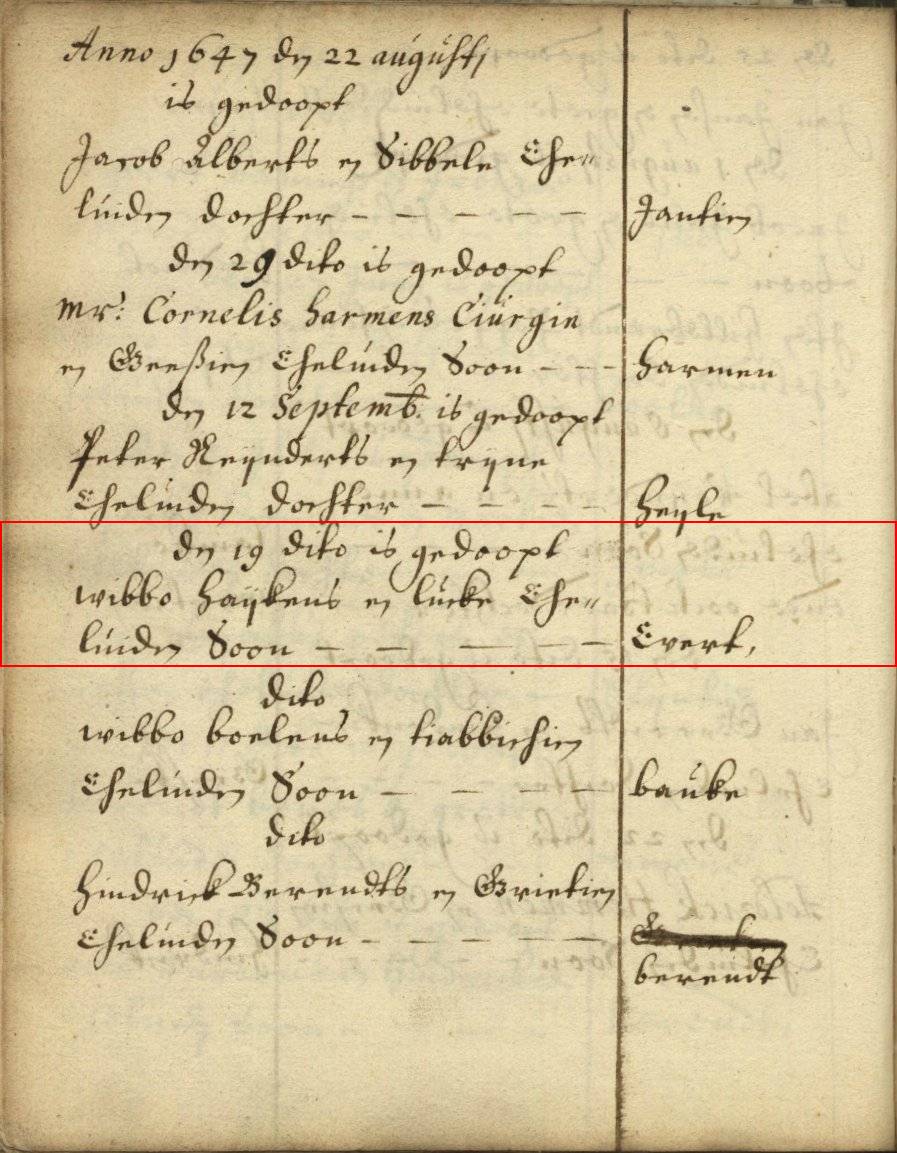 Anno 1647 den 22 augusti
is gedoopt
Jacob Alberts en Sibbele Ehe〃
luiden dochter - - - - - Jantien
den 29 dito is gedoopt
Mr: Cornelis Harmens Ciurgin
en Geeßien Eheluiden Soon - - - Harmen
den 12 Septemb. is gedoopt
Peter Reijnderts en trijne
Eheluiden dochter - - - - - heijle
den 19 dito is gedoopt
wibbo haijkens en lucke Ehe〃
luiden Soon - - - - - Evert,
dito
wibbo boelens en tiabbichien
Eheluiden Soon - - - - - bauke
dito
hindrick Berendts en Grietien
Eheluiden Soon - - - - - - Grietien
berendt